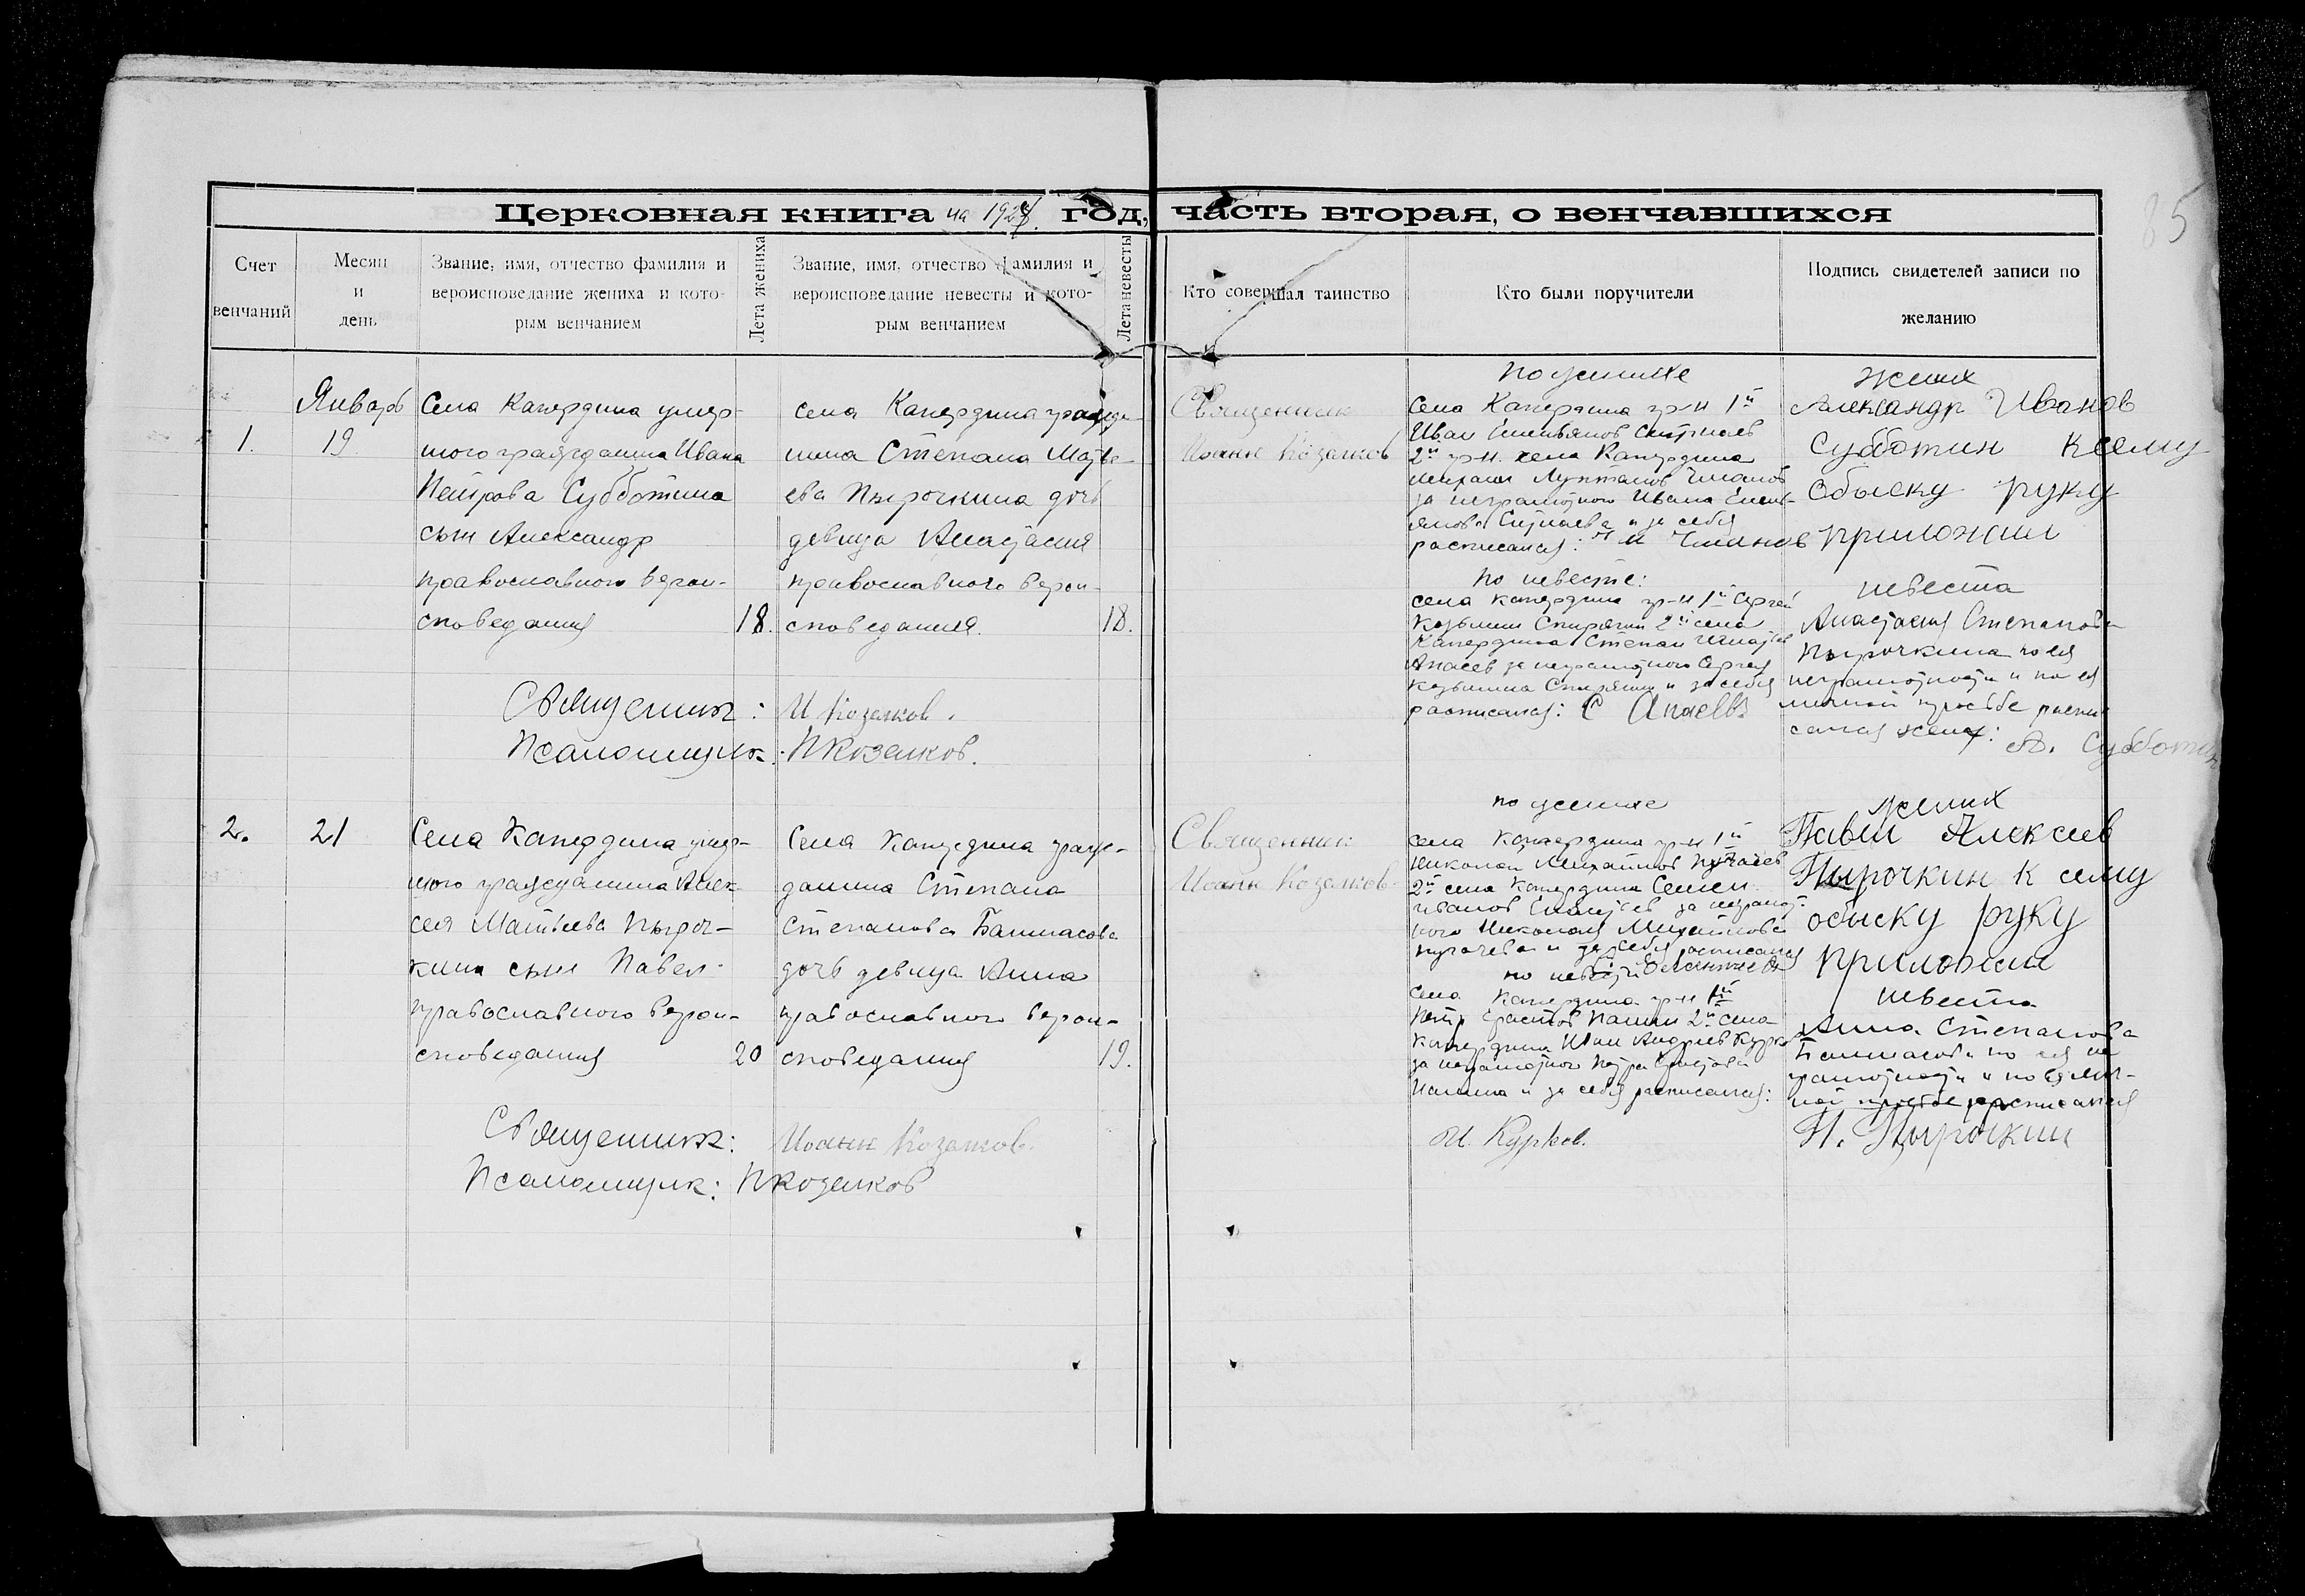 Церковная книга на 1927 год, часть вторая, о венчавшихся
85
Счет венчаний
Месяц и день
Звание, имя, отчество фамилия и
вероисповедание жениха и кото-
рым венчанием
Лета жениха
Звание, имя, отчество фамилия и
вероисповедание невесты и кото-
рым венчанием
Лета невесты
Кто совершал таинство
Кто были поручители
Подпись свидетелей записи по
желанию
1.
Январь
19
Села Капердина умер-
шого гражданина Ивана
Петрова Субботина
сын Александр
православного верои-
споведания
18.
села Капердина гражда-
нина Степана Матве-
ева Пырочкина дочь
девица Анастасия
православного верои-
споведания.
18.
Священник
Иоанн Козелков
по женихе
Села Капердина гр-н 1й
Иван Емельянов
2й гр-н. села Капердина
за неграмотного Ивана Емель-
янова и за себя
расписался:
по невесте:
села Капердина гр-н 1й Сергей
Козьмин Спирягин 2й села
Капердина Степан
Апаев за неграмотного Сергея
Козьмина Спирягина и за себя
расписался: С Апаевъ
жених
Александр Иванов
Субботин к сему
обыску руку
приложил
невеста
Анастасия Степанова
Пырочкина по ея
неграмотности и по ея
личной просьбе распи
сался жених:
А. Субботин
Священник: И Козелков.
Псаломщик: П Козелков.
2.
21
Села Капердина умер-
шого гражданина Алек
сея Матвеева Пыроч-
кина сын Павел
православного верои-
споведания
20
Села Капердина граж-
данина Степана
Степанова Башмасова
дочь девица Анна
православного верои-
споведания
19.
Священник
Иоанн Козелков
по женихе
села Капердина гр-н 1й
Николай Михайлов Пугачев
2й села Капердина Семен
Иванов за неграмот-
ного Николая Михайлова
Пугачева и за себя расписался
по невесте
села Капердина гр-н 1й
Петр Ерастов Папин 2й села
Капердина Иван Андреев Курков
за неграмотного Петра Ерастова
Папина и за себя расписался:
И. Курков.
жених
Павел Алексеев
Пырочкин к сему
обыску руку
приложил
невеста
Анна Степанова
Башмасова по ея не
грамотности и по ея лич-
ной просьбе расписался
П. Пырочкин
Священник: Иоанн Козелков.
Псаломщик: П Козелков